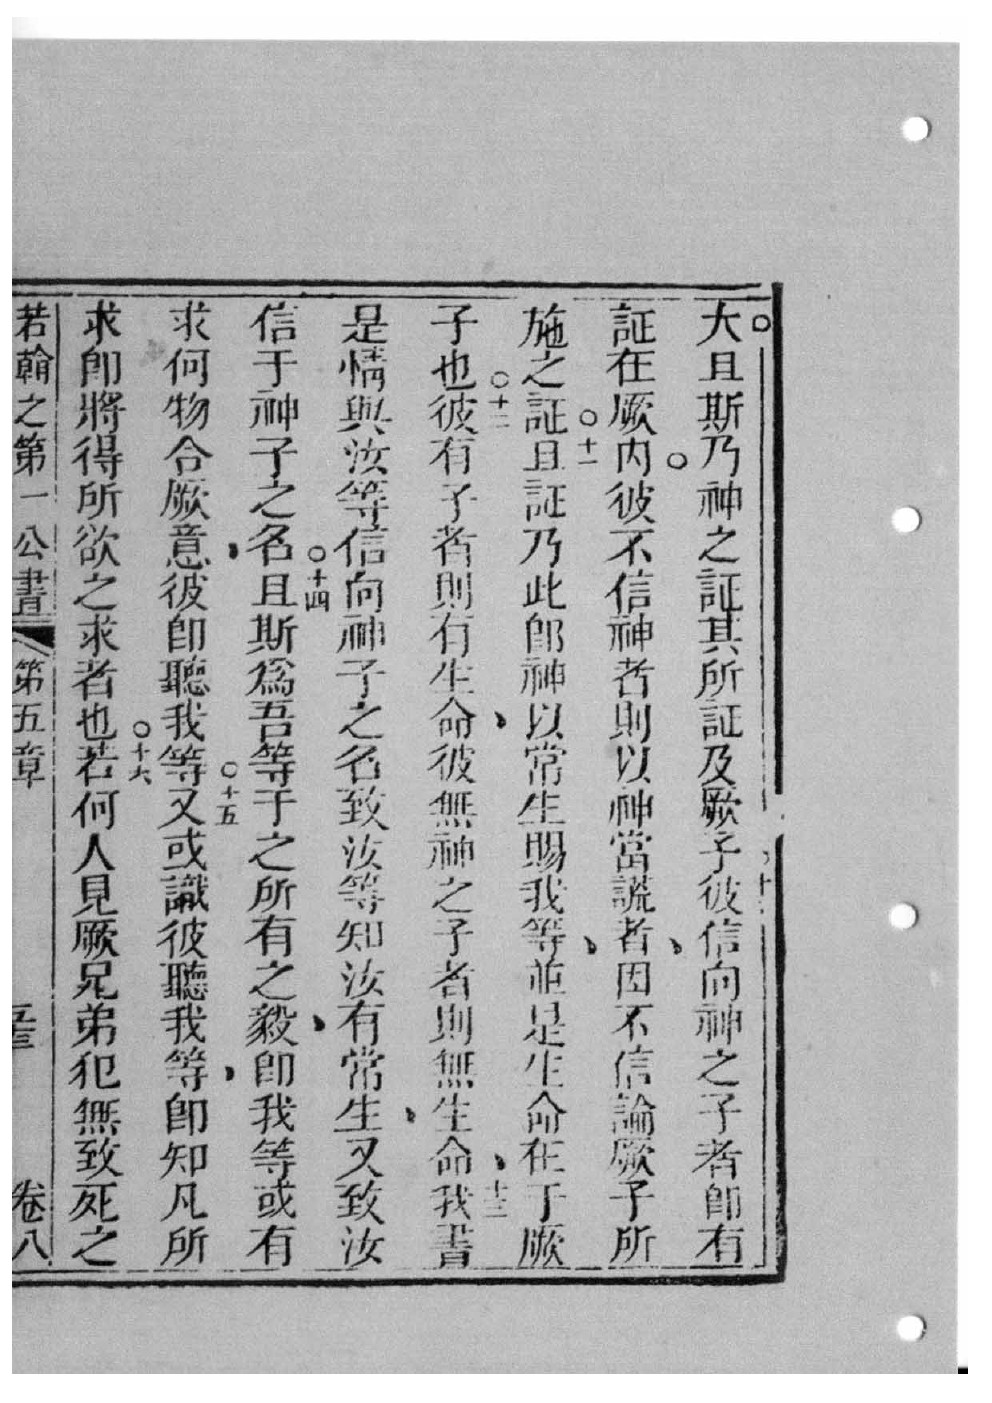 大且斯乃神之証其所証及厥子彼信向神之子者卽有
証在厥內彼不信神者則以神當謊者因不信論厥子所
施之証且証乃此卽神以常生賜我等並是生命在于厥
子也彼有子者則有生命彼無神之子者則無生命我書
是情與汝等信向神子之名致汝等知汝有常生又致汝
信于神子之名且斯爲吾等于之所有之毅卽我等或有
求何物合厥意彼卽聽我等又或識彼聽我等卽知凡所
求卽將得所欲之求者也若何人見厥兄弟犯無致死之
若翰之第一公書 第五章 卷八
十一
十二
十三
十四
十五
十六